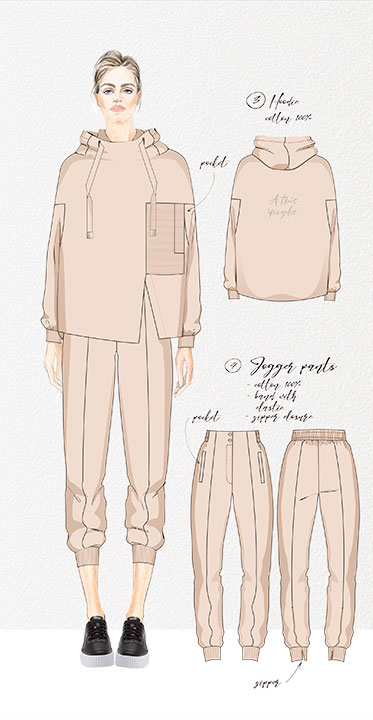 3 Hoodie
cotton 100%
pocket
A true
4 Jogger pants
- cotton 100%
- band with
elastic
- zipper closure
pocket
zipper